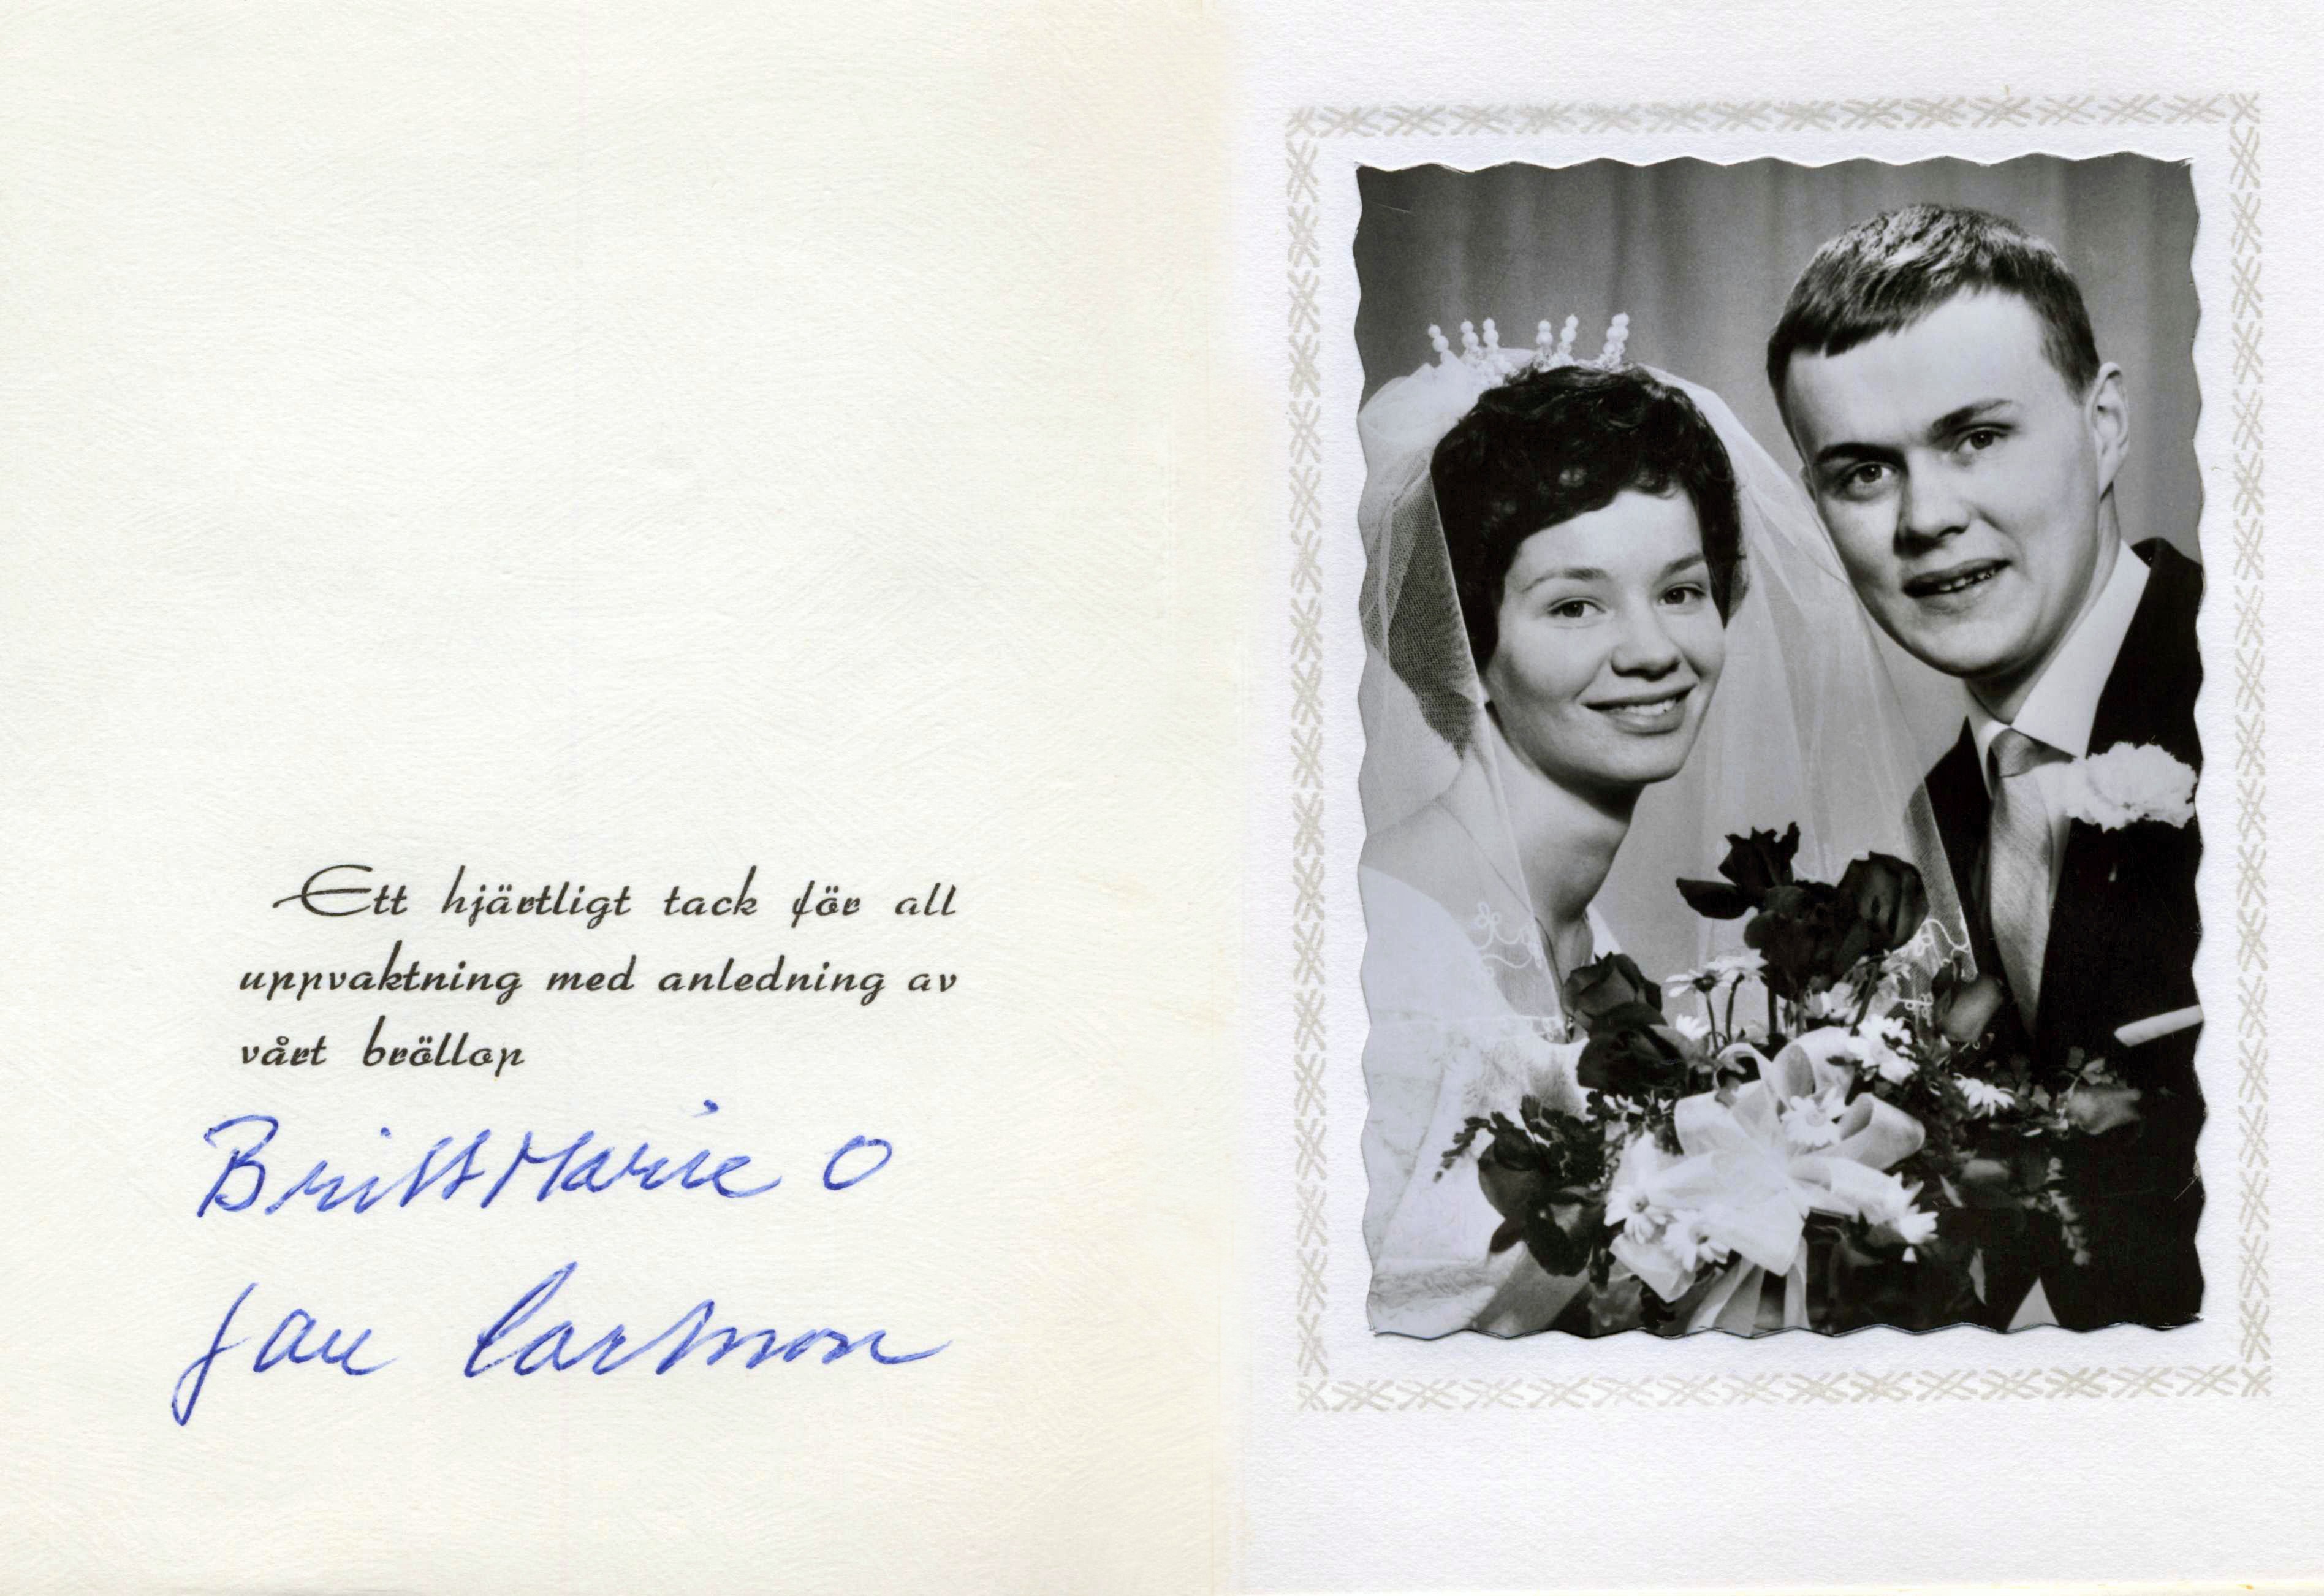 Ett hjärtligt tack för all
uppvaktning med anledning av
vårt bröllop
BrittMarie O
Jan Larsson